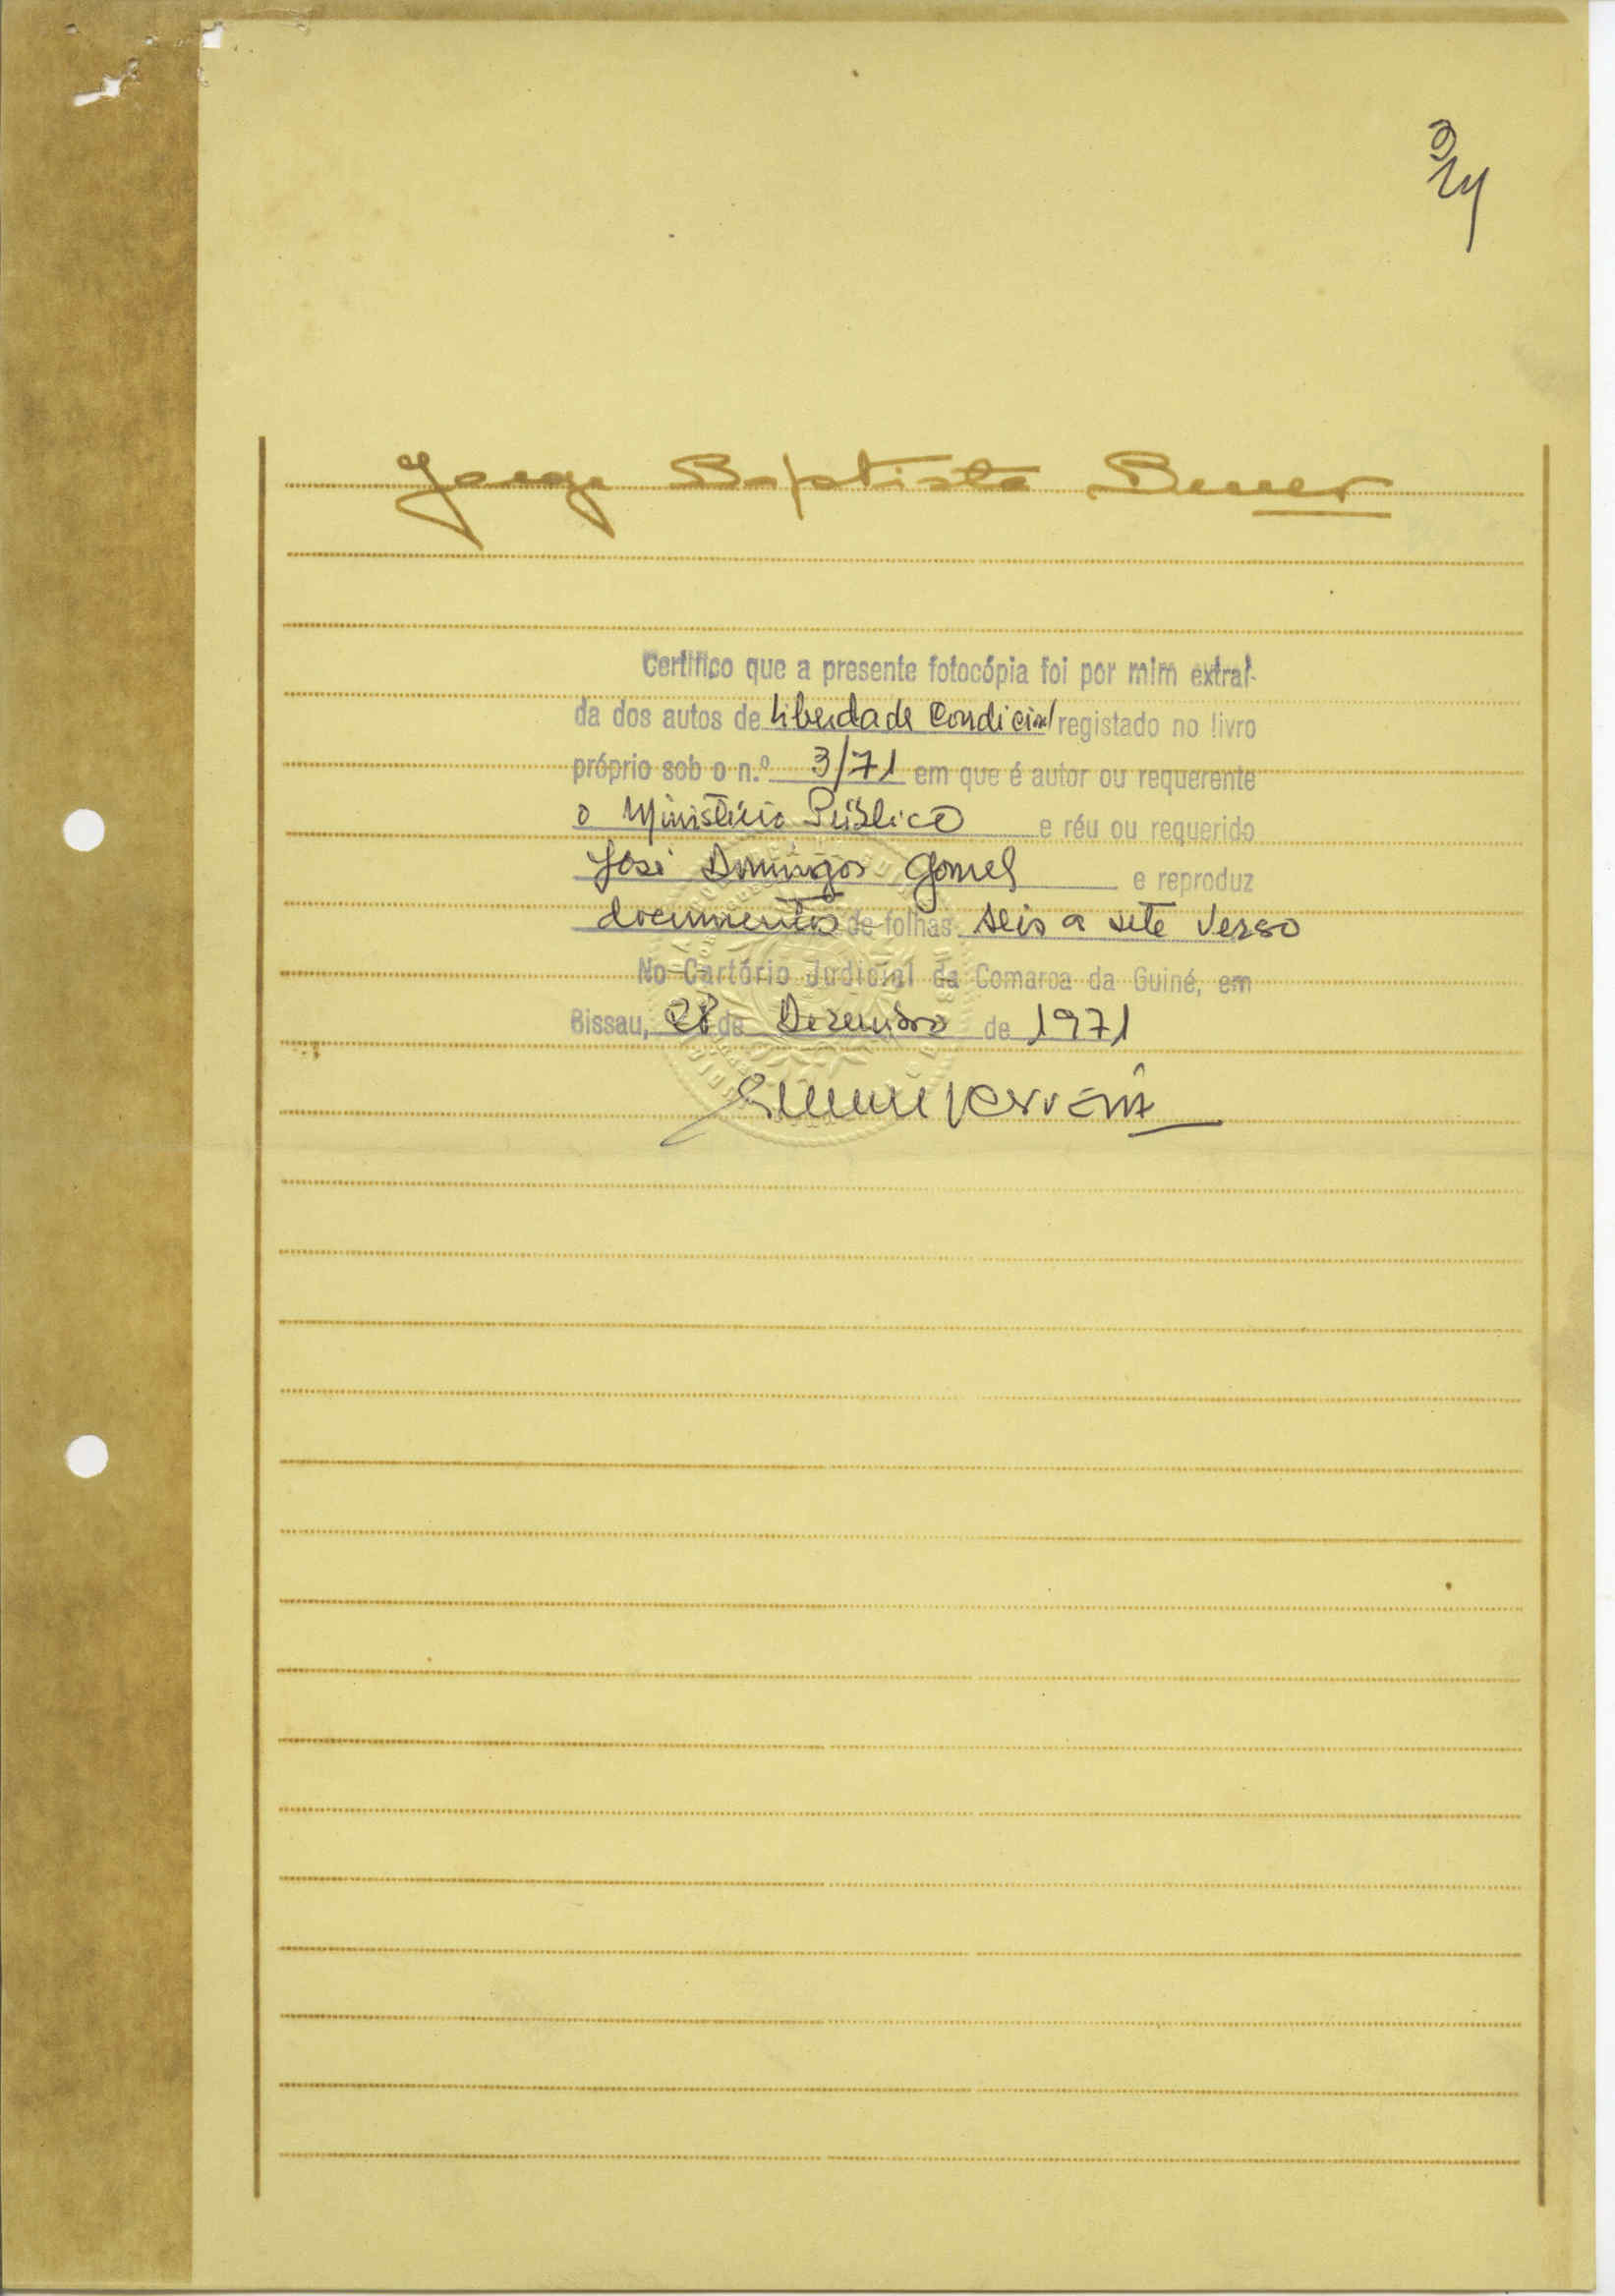 Jorge Baptista
Certifico que a presente fotocópia foi por mim extraí-
da dos autos de Liberdade Condicial registado no livro
próprio sob o n.º 3/71 em que é autor ou requerente
o Ministério Público e réu ou requerido
José Domingos Gomes e reproduz
documentos de folhas seis a sete verso
No Cartório Judicial da Comarca da Guiné, em
Bissau, 28 de Dezembro de 1971